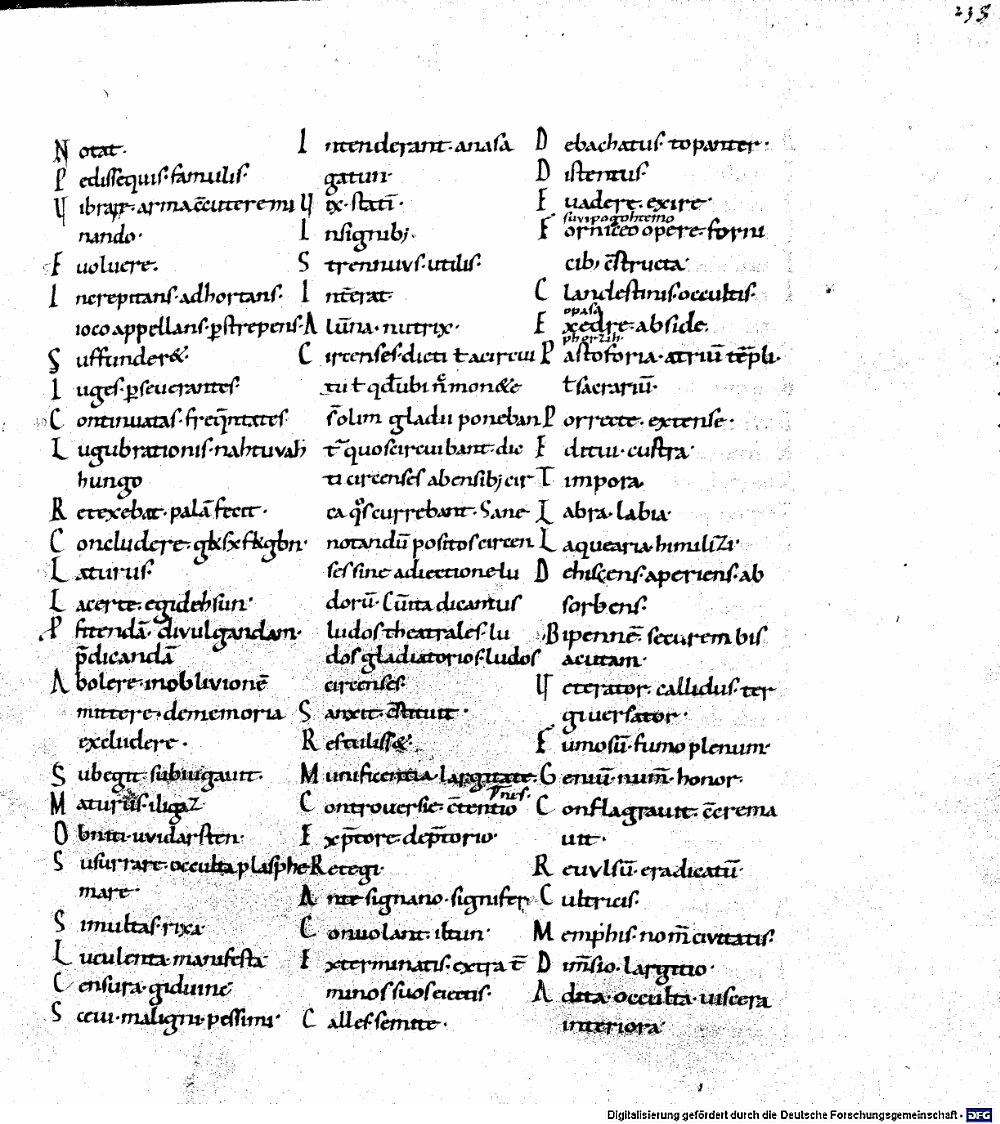 238
N otat·
P edissequis· famulis·
V ibrare· arma c̄cutere mi
nando·
E uoluere·
I ncrepitans· adhortans·
ioco appellans· ꝑstrepens·
S uffunder&·
I uges· ꝑseuerantes·
C ontinuatas· freq̄ntates·
L ugubrationis· nahtuvah
hungo
R etexebat· palā fecit·
C oncludere· gkhxfkgbn·
L aturus·
L acerte· egidehsun·
P fitendā· divulgandam·
p̄dicandā
A bolere· in oblivionē
mittere· de memoria
excludere·
S ubegit· subiugauit·
M aturus· iligaz
O bniti· uvidarsten·
S usurrare· occulta plasphe
mare·
S imultas· rixa·
L uculenta· manifesta·
C ensura· giduinc
S ceui· maligni· pessimi·
I ntenderant· anasa
gatun·
V ix· statī·
I nsignibꝫ·
S trennuvs· utilis·
I nt̄erat·
A lūna· nutrix·
C ircenses· dicti ł a circui
tu ł qd̄ ubi n̄ mon&e
s̄ olim gladii poneban
t̄ quos circuibant· dic
ti circenses ab ensibꝫ cir
ca qͦs currebant· Sane
notandū positos circen
ses sine adiectione lu
dorū· Cūita dicantus
ludos theatrales· lu
dos gladiatorios· ludos
circenses·
S anxit· c̄stituit·
R esculiss&·
M unificentia· largitate·
C ontroversie· c̄tentio
nes·
E xp̄tore· dep̄torio·
R etegi·
A nte signano· signifer
C onuolant· itun·
E xterminatis· extra t̄
minos suos eiectis·
C alles· semite·
D ebachatus· topanter·
D istentus·
E uadere· exire·
suvipogohtemo
F orniceo opere· forni
cibꝫ c̄structa·
C landestinis· occultis·
opasa
E xedre· abside·
phorzih·
P astoforia· atriū tēpli·
ł sacrariū·
P orrecte· extense·
E ditui· custra·
T impora·
L abra· labia·
L aquearia· himilizi·
D ehiscens· aperiens· ab
sorbens·
B ipennē· securem bis
acutam·
V eterator· callidus· ter
giuersator·
F umosū· fumo plenum·
G eniū· num̄· honor·
C onflagrauit· c̄crema
uit·
R euvlsū· eradicatū·
C ultricis·
M emphis· nom̄ civitatis·
D im̄sio· largitio·
A dita· occulta· uiscera
interiora·
Digitalisierung gefördert durch die Deutsche Forschungsgemeinschaft - DFG